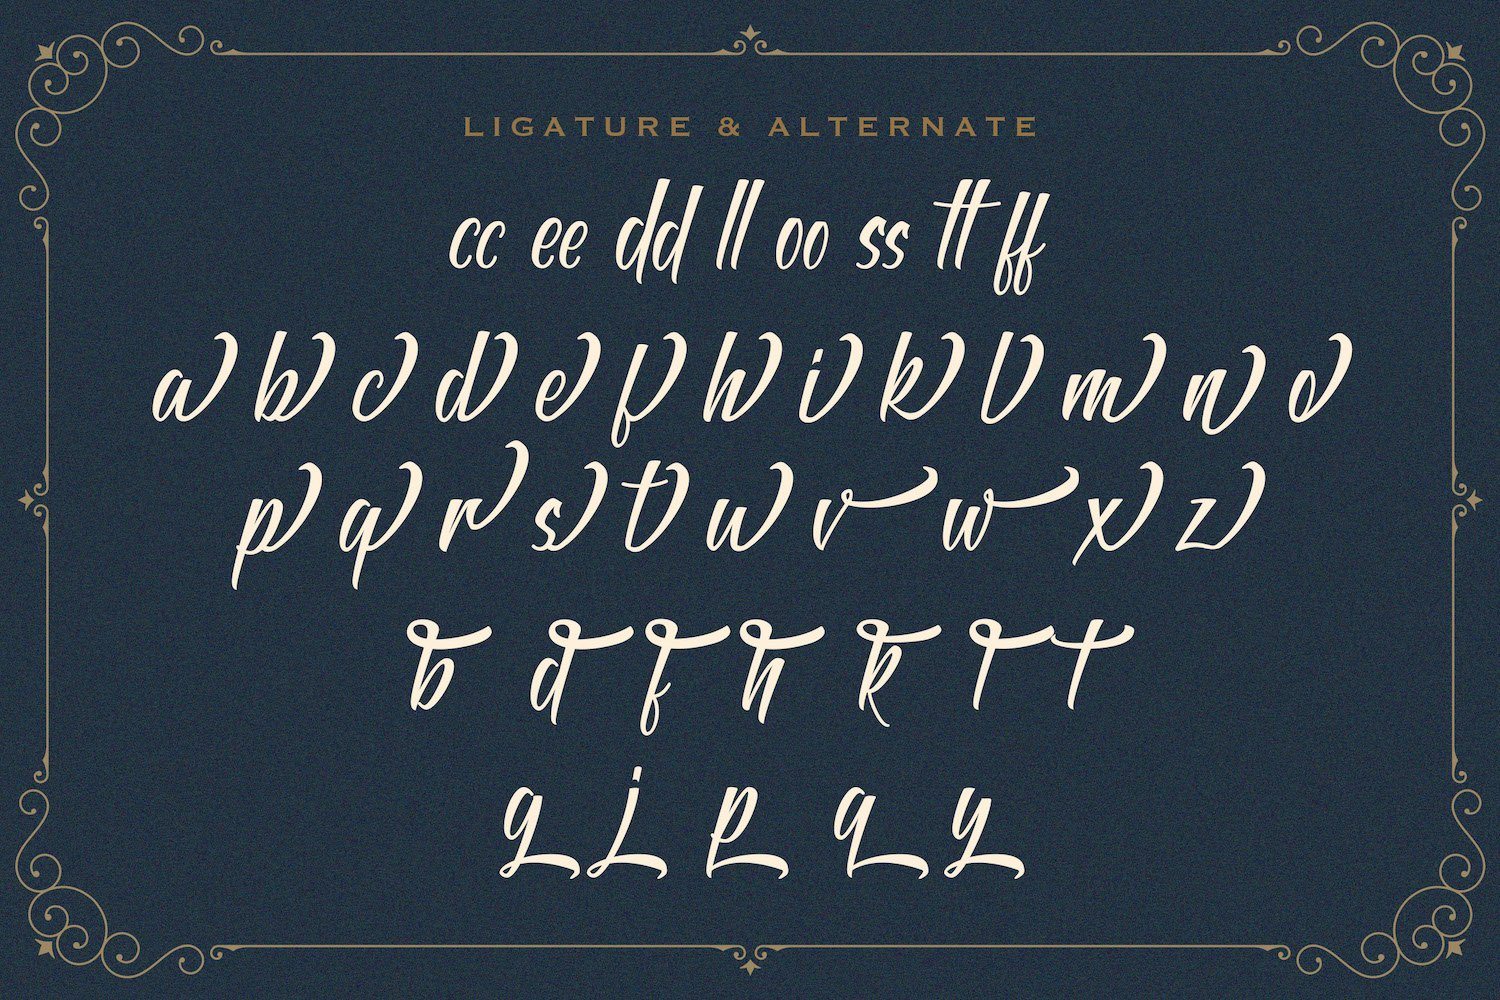 LIGATURE & ALTERNATE
cc ee dd ll oo ss tt ff
a b c d e f h i k l m n o
p q r s t u v w x z
b d f h k l t
g j p q y